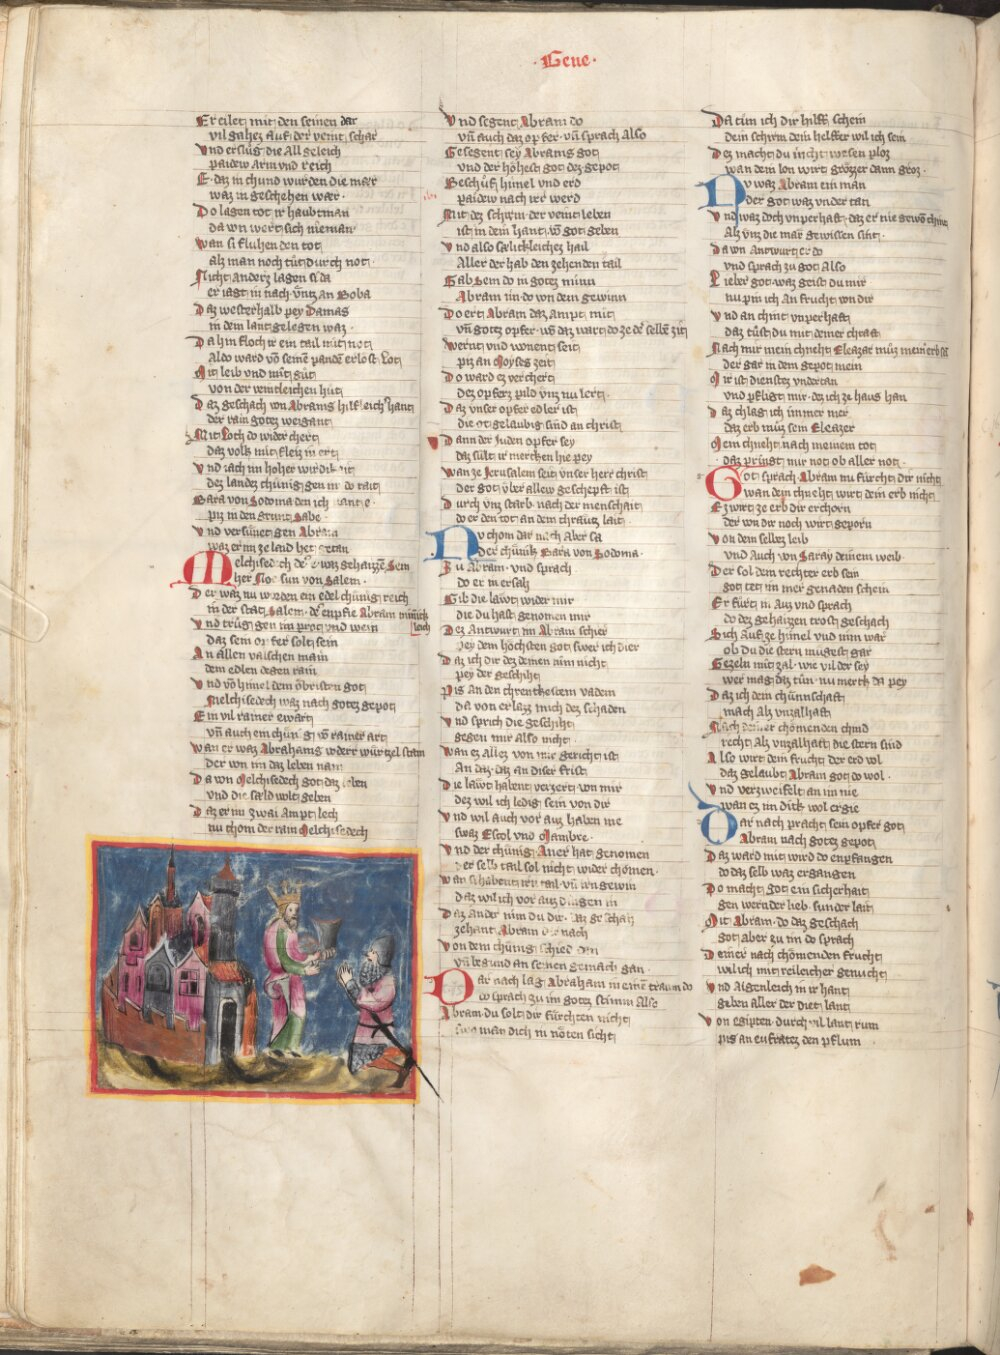 ·Gene·
Er eilet mit den seinen dar
vil gahez auf der veint schar
Vnd erslůg die All geleich
paidew Arm vnd reich
E daz in chund wurden die mær
waz in geschehen wær·
Do lagen tot ir haubtman
da von wert sich nieman
Wan si fluhen den tot
alz man noch tůt durch not·
Nicht anderz lagen si da
er iagt in nach vntz an Boba
Daz westerhalb pey Damas
in dem lant gelegen waz·
Dahin floch ir ein tail mit not
Aldo ward võ seinẽ panden erlost Lot
Mit leib vnd mit gůt
von der veintleichen hůt
Daz geschach von Abrams hilfleich hant
der rain gotez weigant
Mit Loth do wider chert
daz volk mit fleiz in ert
Vnd iach im hoher wirdikait
dez landez chünig gen im do rait
Bara von Sodoma den ich nante·
piz in den grunt Sabe·
Vnd versünet gen Abram
waz er im ze laid het getan
Melchisedech der waz gehaizzẽ Sem
her Noe sun von Salem·
Der waz nu worden ein edel chünig reich
in der stat Salem· der enpfie Abram minnick
leich
Vnd trůg gen im prot vnd wein
daz sein opfer solt sein
An allen valschen main
dem edlen degen rain
Vnd võ himel dem öbristen got
Melchisedech waz nach gotez gepot
Ein vil rainer ewart
vñ auch ein chünig võ rainer art
Wan er waz Abrahams voderr würtzel stam
der von im daz leben nam
Da von Melchisedech got daz leben
vnd die sæld wolt geben
Daz er im zwai ampt lech
nu chom der rain Melchisedech
Vnd segent Abram do
vñ auch daz opfer· vñ sprach Also
Gesegent sey Abrams got
vnd der höhest got dez gepot
Beschůf himel vnd erd
paidew nach ir werd
Mit dez schirm der veint leben
ist in dein hant võ got geben
Vnd also sælichleichez hail
Aller der hab den zehenden tail
Gab Sem do in gotez minn
Abram im do von dem gewinn
Do ert Abram daz ampt mit
vñ gotz opfer· võ daz ward do ze der selbẽ zit
Wernt vnd wonent seit
piz an Moyses zeit
Do ward ez verchert
dez opferz pild vnz nu lert
Daz vnser opfer edler ist
die ot gelaubig sind an christ
Dann der Juden opfer sey
daz sült ir merchen hie pey
Wan ze Jerusalem seit vnser herr christ
der got vber allew geschepft ist
Durch vns starb nach der menschait
do er den tot an dem chräutz lait
Nu chom dar nach Aber sa
Der chünik Bara von Sodoma·
Zu Abram· vnd sprach
do er in ersah
Gib die läwt wider mir
die du hast genomen mir
Dez Antwurt im Abram schier
pey dem höchsten got swer ich dier
Daz ich dir dez deinen nim nicht
pey der geschiht
Piz An den chrenkesten vadem
da von erlazz mich dez schaden
Vnd sprich die geschiht
gegen mir also nicht·
Wan ez allez von mir gericht ist
An daz· daz an diser frist
Die läwt habent verzert von mir
dez wil ich ledig sein von dir
Vnd wil auch vor auz haben me
swaz Escol vnd Mambre·
Vnd der chünig Aner hat genomen
der selb tail sol nicht wider chomen·
Wan si habent irn tail· vñ irn gewin
daz wil ich vor auz dingen in
Daz Ander nim du dir· daz geschah
zehant Abram dar nach
Von dem chünig schied dan
vñ begund an seinen gemach gan·
Dar nach lag Abraham in eine traum do
do sprach zu im gotez stimm Also
Abram du solt dir fürchten nicht
swo man dich in nöten sicht
Da tün ich dir hilff schein
Dein schirm dein helffer wil ich sein
Dez macht du nicht wesen ploz
wan dem lon wirt grözzer dann groz·
Nu waz Abram ein man
Der got waz vnder tan
Vnd waz doch vnperhaft· daz er nie gewõ chint
Alz vnz die mär gewissen sint·
Da von Antwurt er do
vnd sprach zu got Also
Lieber got waz geist du mir
nu pin ich An frucht von dir
Vnd an chint vnperhaft
daz tüst du mit deiner chraft
Nach mir mein chneht Eleazar můz mein erb sei
der gar in dem gepot mein
Mir ist dienstez vndertan
vnd pfligt mir· dez ich ze haus han
Daz chlag ich immer mer
daz erb můz sein Eleazer
Mein chneht nach meinem tot
daz pringt mir not ob aller not·
Got sprach Abram nu fürcht dir nicht
wan dein chneht wirt dein erb nicht
Ez wirt ze erb dir erchorn
der von dir noch wirt geporn
Von dein selbez leib
vnd Auch von Saray deinem weib
Der sol dein rechter erb sein
got tet im mer genaden schein
Er fürt in Auz vnd sprach
do dez gehaizzen trost geschach
Sich Auf ze himel vnd nim war
ob du die stern mügest gar
Gezeln mit zal· wie vil der sey
wer mag daz tün· nu merk da pey
Daz ich dein chünnschaft
mach Alz vnzalhaft
Nach deiner chömenden chind
recht Alz vnzalhaft die stern sind
Also wirt dein frucht der erd vol
daz gelaubt Abram got do wol·
Vnd verzweifelt an im nie
wan ez im dick wol ergie
Dar nach pracht sein opfer got
Abram nach gotez gepot
Daz ward mit wird do enpfangen
do daz selb waz ergangen
Do macht got ein sicherhait
gen wernder lieb· sunder lait
Mit Abram· do daz geschach
got aber zu im do sprach
Deiner nach chömenden frucht
wil ich mit reileicher genucht
Vnd Aigenleich in ir hant
geben aller der diet lant
Von egipten· durch vil lant rum
piz an eufratez den pflum